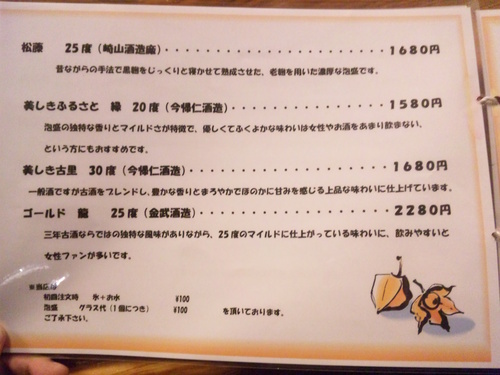 松藤 25度（崎山酒造廠）・・・・・・・・・・・・・・・・・・・・・・1680円
昔ながらの手法で黒麹をじっくりと寝かせて熟成させた、老麹を用いた濃厚な泡盛です。
美しきふるさと 緑 20度（今帰仁酒造）・・・・・・・・・・・・・・・1580円
泡盛の独特な香りとマイルドさが特徴で、優しくてふくよかな味わいは女性やお酒をあまり飲まない、
という方にもおすすめです。
美しき古里 30度（今帰仁酒造）・・・・・・・・・・・・・・・・・・・1680円
一般酒ですが古酒をブレンドし、豊かな香りとまろやかでほのかに甘みを感じる上品な味わいに仕上げています。
ゴールド 龍 25度（金武酒造）・・・・・・・・・・・・・・・・・・・2280円
三年古酒ならではの独特な風味がありながら、25度のマイルドに仕上がっている味わいに、飲みやすいと
女性ファンが多いです。
※当店では
初回注文時 氷＋お水 ¥100
泡盛 グラス代（1個につき） ¥100 を頂いております。
ご了承下さい。